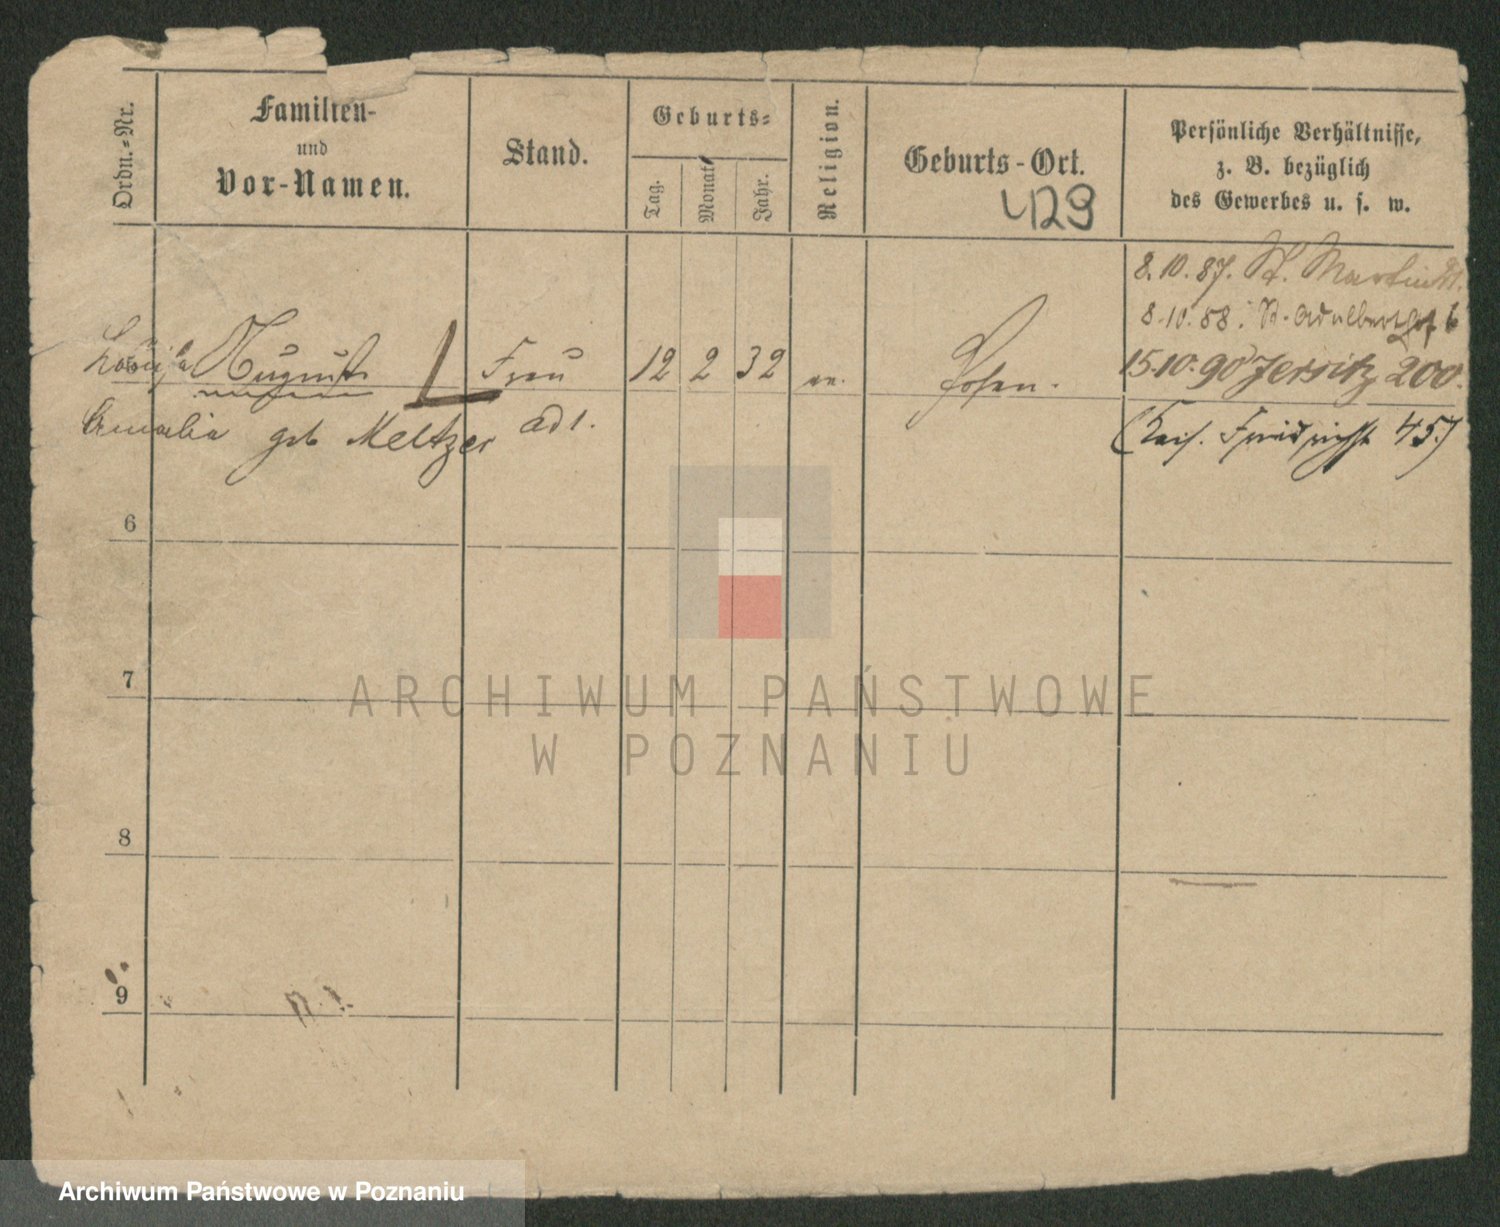 Ordn.-Nr.
Familien-
und
Vor-Namen.
Stand.
Geburts-
Tag.
Monat
Jahr.
Religion.
Geburts-Ort.
429
Persönliche Verhältnisse,
z. B. bezüglich
des Gewerbes u. s. w.
8.10.87. St. Martin
8.10.88. St. Adalbert
Auguste Frau 12 2 32 ev. Posen. 15.10.90 Jersitz 200.
Amalia geb Meltzer (Kais. Friedrichstr 45)
6
7
8
9
ARCHIWUM PAŃSTWOWE
W POZNANIU
Archiwum Państwowe w Poznaniu